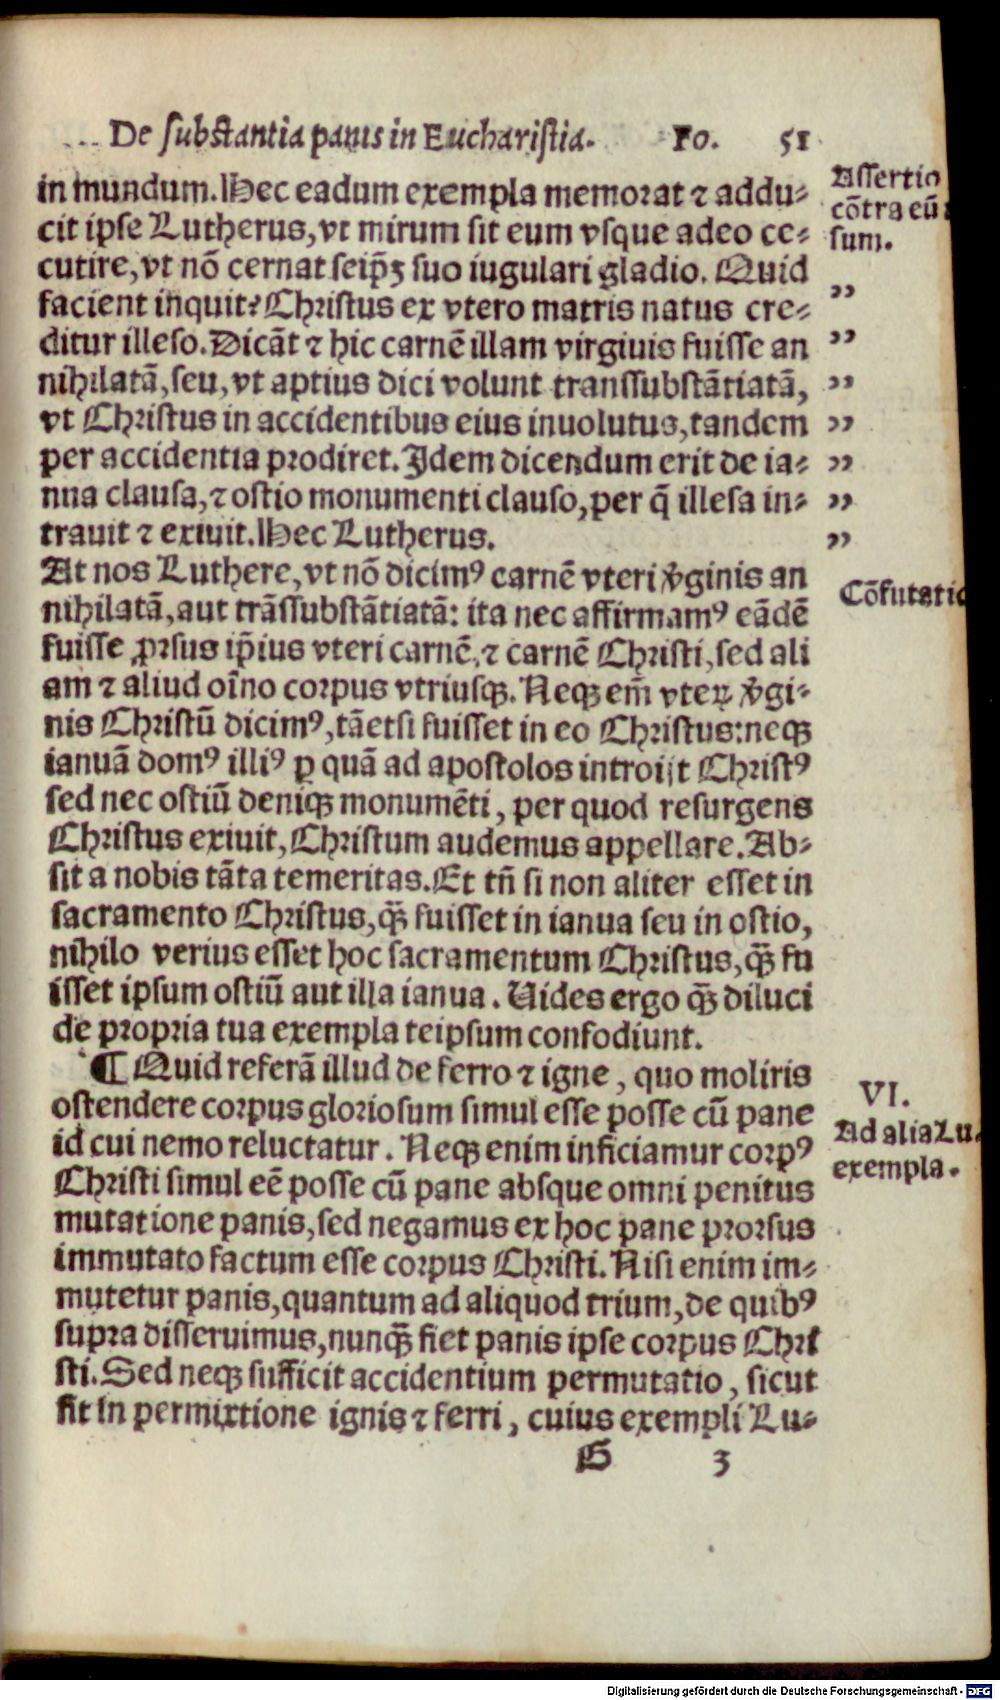 De substantia panis in Eucharistia. Fo. 51
in mundum. Hec eadum exempla memorat ⁊ addu⸗
cit ipse Lutherus, vt mirum sit eum vsque adeo ce⸗
cutire, vt nõ cernat seip̃ꝫ suo iugulari gladio. Quid
facient inquit? Christus ex vtero matris natus cre⸗
ditur illeso. Dicãt ⁊ hic carnẽ illam virginis fuisse an
nihilatã, seu, vt aptius dici volunt transsubstãtiatã,
vt Christus in accidentibus eius inuolutus, tandem
per accidentia prodiret. Idem dicendum erit de ia⸗
nua clausa, ⁊ ostio monumenti clauso, per q̃ illesa in⸗
trauit ⁊ exiuit. Hec Lutherus.
At nos Luthere, vt nõ dicimꝰ carnẽ vteri v̾ginis an
nihilatã, aut trãssubstãtiatã: ita nec affirmamꝰ eãdẽ
fuisse ꝓrsus ip̃ius vteri carnẽ, ⁊ carnẽ Christi, sed ali
am ⁊ aliud oĩno corpus vtriusqꝫ. Neqꝫ em̃ vteꝝ v̾gi⸗
nis Christũ dicimꝰ, tãetsi fuisset in eo Christus: neqꝫ
ianuã domꝰ illiꝰ ꝑ quã ad apostolos introijt Christꝰ
sed nec ostiũ deniqꝫ monumẽti, per quod resurgens
Christus exiuit, Christum audemus appellare. Ab⸗
sit a nobis tãta temeritas. Et tñ si non aliter esset in
sacramento Christus, qꝫ̃ fuisset in ianua seu in ostio,
nihilo verius esset hoc sacramentum Christus, qꝫ̃ fu
isset ipsum ostiũ aut illa ianua. Uides ergo qꝫ̃ diluci
de propria tua exempla teipsum confodiunt.
¶ Quid referã illud de ferro ⁊ igne, quo moliris
ostendere corpus gloriosum simul esse posse cũ pane
id cui nemo reluctatur. Neqꝫ enim inficiamur corpꝰ
Christi simul eẽ posse cũ pane absque omni penitus
mutatione panis, sed negamus ex hoc pane prorsus
immutato factum esse corpus Christi. Nisi enim im⸗
mutetur panis, quantum ad aliquod trium, de quibꝰ
supra disseruimus, nunqꝫ̃ fiet panis ipse corpus Chri
sti. Sed neqꝫ sufficit accidentium permutatio, sicut
fit in permixtione ignis ⁊ ferri, cuius exempli Lu⸗
G 3
Assertio
cõtra eũ
sum.
,,
,,
,,
,,
,,
,,
,,
Cõfutatio
VI.
Ad alia Lu.
exempla.
Digitalisierung gefördert durch die Deutsche Forschungsgemeinschaft - DFG